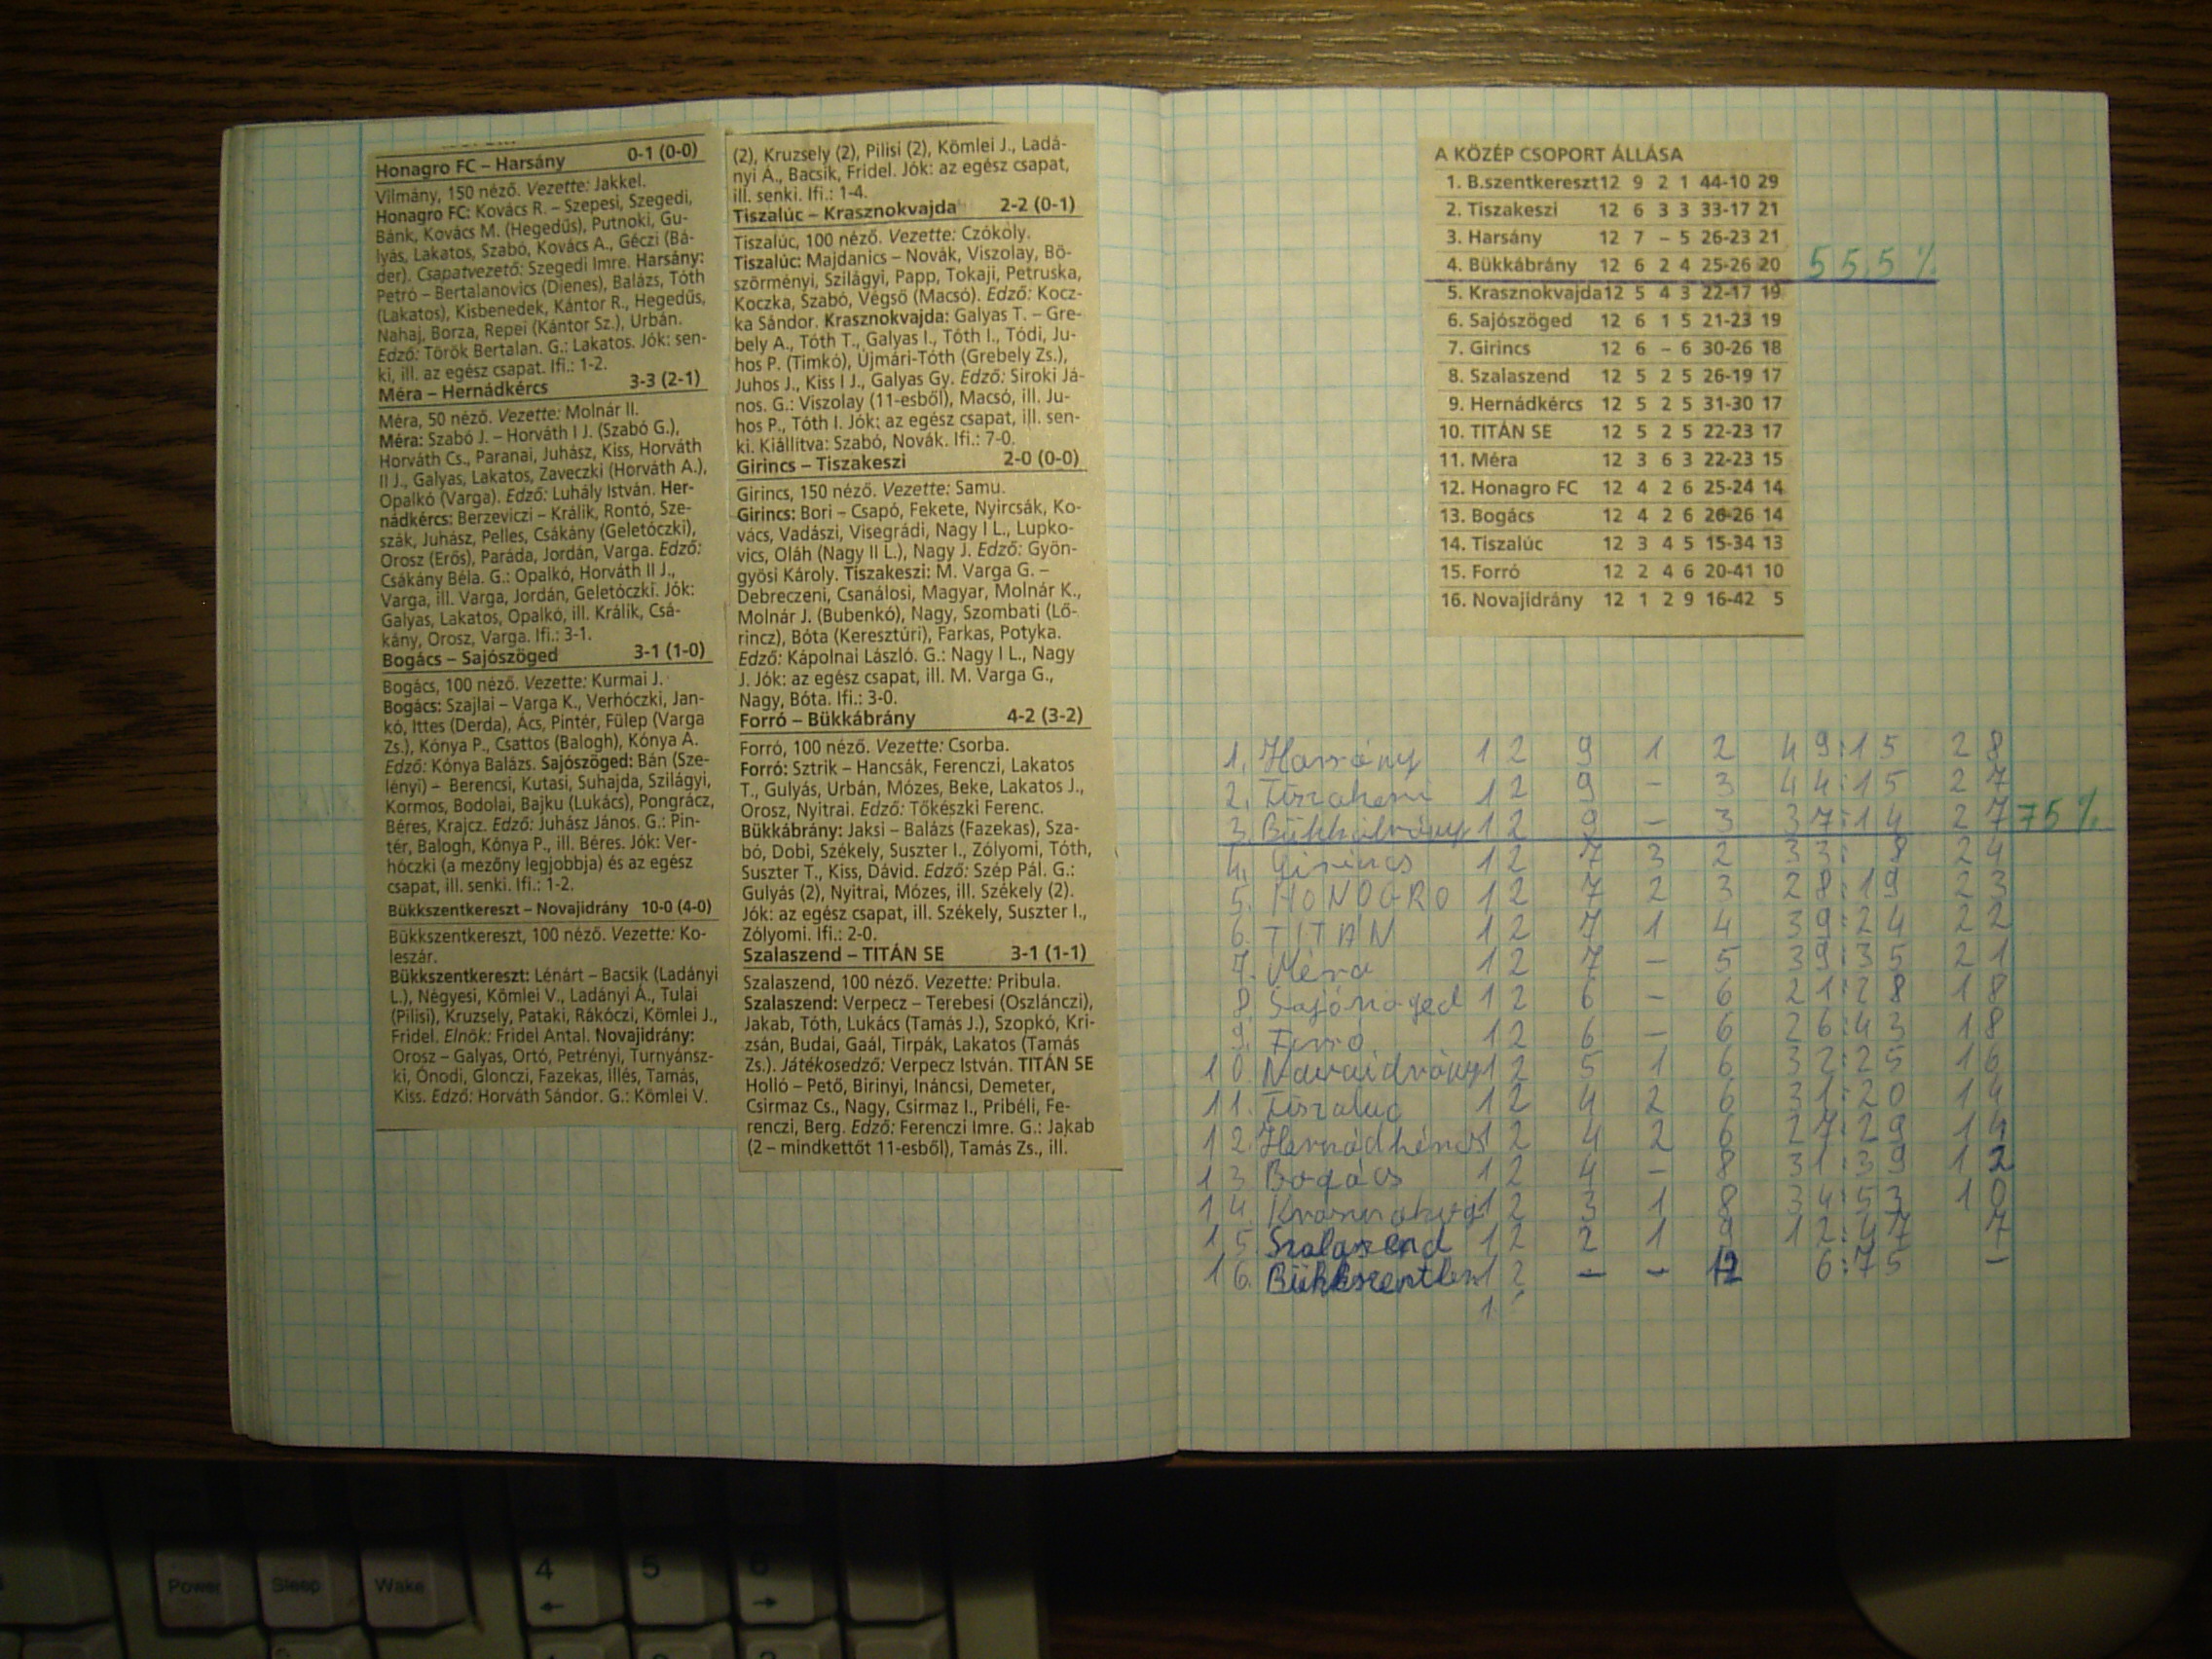 Honagro FC – Harsány 0-1 (0-0)
Vilmány, 150 néző. Vezette: Jakkel.
Honagro FC: Kovács R. – Szepesi, Szegedi,
Bánk, Kovács M. (Hegedűs), Putnoki, Gu-
lyás, Lakatos, Szabó, Kovács A., Géczi (Bá-
der). Csapatvezető: Szegedi Imre. Harsány:
Petró – Bertalanovics (Dienes), Balázs, Tóth
(Lakatos), Kisbenedek, Kántor R., Hegedűs,
Nahaj, Borza, Repei (Kántor Sz.), Urbán.
Edző: Török Bertalan. G.: Lakatos. Jók: sen-
ki, ill. az egész csapat. Ifi.: 1-2.
Méra – Hernádkércs 3-3 (2-1)
Méra, 50 néző. Vezette: Molnár II.
Méra: Szabó J. – Horváth I J. (Szabó G.),
Horváth Cs., Paranai, Juhász, Kiss, Horváth
II J., Galyas, Lakatos, Zaveczki (Horváth A.),
Opalkó (Varga). Edző: Luhály István. Her-
nádkércs: Berzeviczi – Králik, Rontó, Sze-
szák, Juhász, Pelles, Csákány (Geletóczki),
Orosz (Erős), Paráda, Jordán, Varga. Edző:
Csákány Béla. G.: Opalkó, Horváth II J.,
Varga, ill. Varga, Jordán, Geletóczki. Jók:
Galyas, Lakatos, Opalkó, ill. Králik, Csá-
kány, Orosz, Varga. Ifi.: 3-1.
Bogács – Sajószöged 3-1 (1-0)
Bogács, 100 néző. Vezette: Kurmai J.
Bogács: Szajlai – Varga K., Verhóczki, Jan-
kó, Ittes (Derda), Ács, Pintér, Fülep (Varga
Zs.), Kónya P., Csattos (Balogh), Kónya A.
Edző: Kónya Balázs. Sajószöged: Bán (Sze-
lényi) – Berencsi, Kutasi, Suhajda, Szilágyi,
Kormos, Bodolai, Bajku (Lukács), Pongrácz,
Béres, Krajcz. Edző: Juhász János. G.: Pin-
tér, Balogh, Kónya P., ill. Béres. Jók: Ver-
hóczki (a mezőny legjobbja) és az egész
csapat, ill. senki. Ifi.: 1-2.
Bükkszentkereszt – Novajidrány 10-0 (4-0)
Bükkszentkereszt, 100 néző. Vezette: Ko-
leszár.
Bükkszentkereszt: Lénárt – Bacsik (Ladányi
L.), Négyesi, Kömlei V., Ladányi Á., Tulai
(Pilisi), Kruzsely, Pataki, Rákóczi, Kömlei J.,
Fridel. Elnök: Fridel Antal. Novajidrány:
Orosz – Galyas, Ortó, Petrényi, Turnyánsz-
ki, Ónodi, Glonczi, Fazekas, Illés, Tamás,
Kiss. Edző: Horváth Sándor. G.: Kömlei V.
(2), Kruzsely (2), Pilisi (2), Kömlei J., Ladá-
nyi Á., Bacsik, Fridel. Jók: az egész csapat,
ill. senki. Ifi.: 1-4.
Tiszalúc – Krasznokvajda 2-2 (0-1)
Tiszalúc, 100 néző. Vezette: Czókoly.
Tiszalúc: Majdanics – Novák, Viszolay, Bö-
szörményi, Szilágyi, Papp, Tokaji, Petruska,
Koczka, Szabó, Végső (Macsó). Edző: Kocz-
ka Sándor. Krasznokvajda: Galyas T. – Gre-
bely A., Tóth T., Galyas I., Tóth I., Tódi, Ju-
hos P. (Timkó), Újmári-Tóth (Grebely Zs.),
Juhos J., Kiss I J., Galyas Gy. Edző: Siroki Já-
nos. G.: Viszolay (11-esből), Macsó, ill. Ju-
hos P., Tóth I. Jók: az egész csapat, ill. sen-
ki. Kiállítva: Szabó, Novák. Ifi.: 7-0.
Girincs – Tiszakeszi 2-0 (0-0)
Girincs, 150 néző. Vezette: Samu.
Girincs: Bori – Csapó, Fekete, Nyircsák, Ko-
vács, Vadászi, Visegrádi, Nagy I L., Lupko-
vics, Oláh (Nagy II L.), Nagy J. Edző: Gyön-
gyösi Károly. Tiszakeszi: M. Varga G. –
Debreczeni, Csanálosi, Magyar, Molnár K.,
Molnár J. (Bubenkó), Nagy, Szombati (Lő-
rincz), Bóta (Keresztúri), Farkas, Potyka.
Edző: Kápolnai László. G.: Nagy I L., Nagy
J. Jók: az egész csapat, ill. M. Varga G.,
Nagy, Bóta. Ifi.: 3-0.
Forró – Bükkábrány 4-2 (3-2)
Forró, 100 néző. Vezette: Csorba.
Forró: Sztrik – Hancsák, Ferenczi, Lakatos
T., Gulyás, Urbán, Mózes, Beke, Lakatos J.,
Orosz, Nyitrai. Edző: Tőkészki Ferenc.
Bükkábrány: Jaksi – Balázs (Fazekas), Sza-
bó, Dobi, Székely, Suszter I., Zólyomi, Tóth,
Suszter T., Kiss, Dávid. Edző: Szép Pál. G.:
Gulyás (2), Nyitrai, Mózes, ill. Székely (2).
Jók: az egész csapat, ill. Székely, Suszter I.,
Zólyomi. Ifi.: 2-0.
Szalaszend – TITÁN SE 3-1 (1-1)
Szalaszend, 100 néző. Vezette: Pribula.
Szalaszend: Verpecz – Terebesi (Oszlánczi),
Jakab, Tóth, Lukács (Tamás J.), Szopkó, Kri-
zsán, Budai, Gaál, Tirpák, Lakatos (Tamás
Zs.). Játékosedző: Verpecz István. TITÁN SE
Holló – Pető, Birinyi, Ináncsi, Demeter,
Csirmaz Cs., Nagy, Csirmaz I., Pribéli, Fe-
renczi, Berg. Edző: Ferenczi Imre. G.: Jakab
(2 – mindkettőt 11-esből), Tamás Zs., ill.
A KÖZÉP CSOPORT ÁLLÁSA
1. B.szentkereszt 12 9 2 1 44-10 29
2. Tiszakeszi 12 6 3 3 33-17 21
3. Harsány 12 7 – 5 26-23 21
4. Bükkábrány 12 6 2 4 25-26 20 55,5%
5. Krasznokvajda 12 5 4 3 22-17 19
6. Sajószöged 12 6 1 5 21-23 19
7. Girincs 12 6 – 6 30-26 18
8. Szalaszend 12 5 2 5 26-19 17
9. Hernádkércs 12 5 2 5 31-30 17
10. TITÁN SE 12 5 2 5 22-23 17
11. Méra 12 3 6 3 22-23 15
12. Honagro FC 12 4 2 6 25-24 14
13. Bogács 12 4 2 6 26-26 14
14. Tiszalúc 12 3 4 5 15-34 13
15. Forró 12 2 4 6 20-41 10
16. Novajidrány 12 1 2 9 16-42 5
1. Harsány 12 9 1 2 49:15 28
2. Tiszakeszi 12 9 – 3 44:15 27
3. Bükkábrány 12 9 – 3 37:14 27 75%
4. Girincs 12 7 3 2 33: 8 24
5. HONOGRO 12 7 2 3 28:19 23
6. TITÁN 12 7 1 4 39:24 22
7. Méra 12 7 – 5 39:35 21
8. Sajószöged 12 6 – 6 21:28 18
9. Forró 12 6 – 6 26:43 18
10. Novajidrány 12 5 1 6 32:25 16
11. Tiszalúc 12 4 2 6 31:20 14
12. Hernádkércs 12 4 2 6 27:29 14
13. Bogács 12 4 – 8 31:39 12
14. 12 3 1 8 34:53 10
15. Szalaszend 12 2 1 9 12:47 7
16. 12 – – 12 6:75 –
Power Sleep Wake 4 5 6
← →